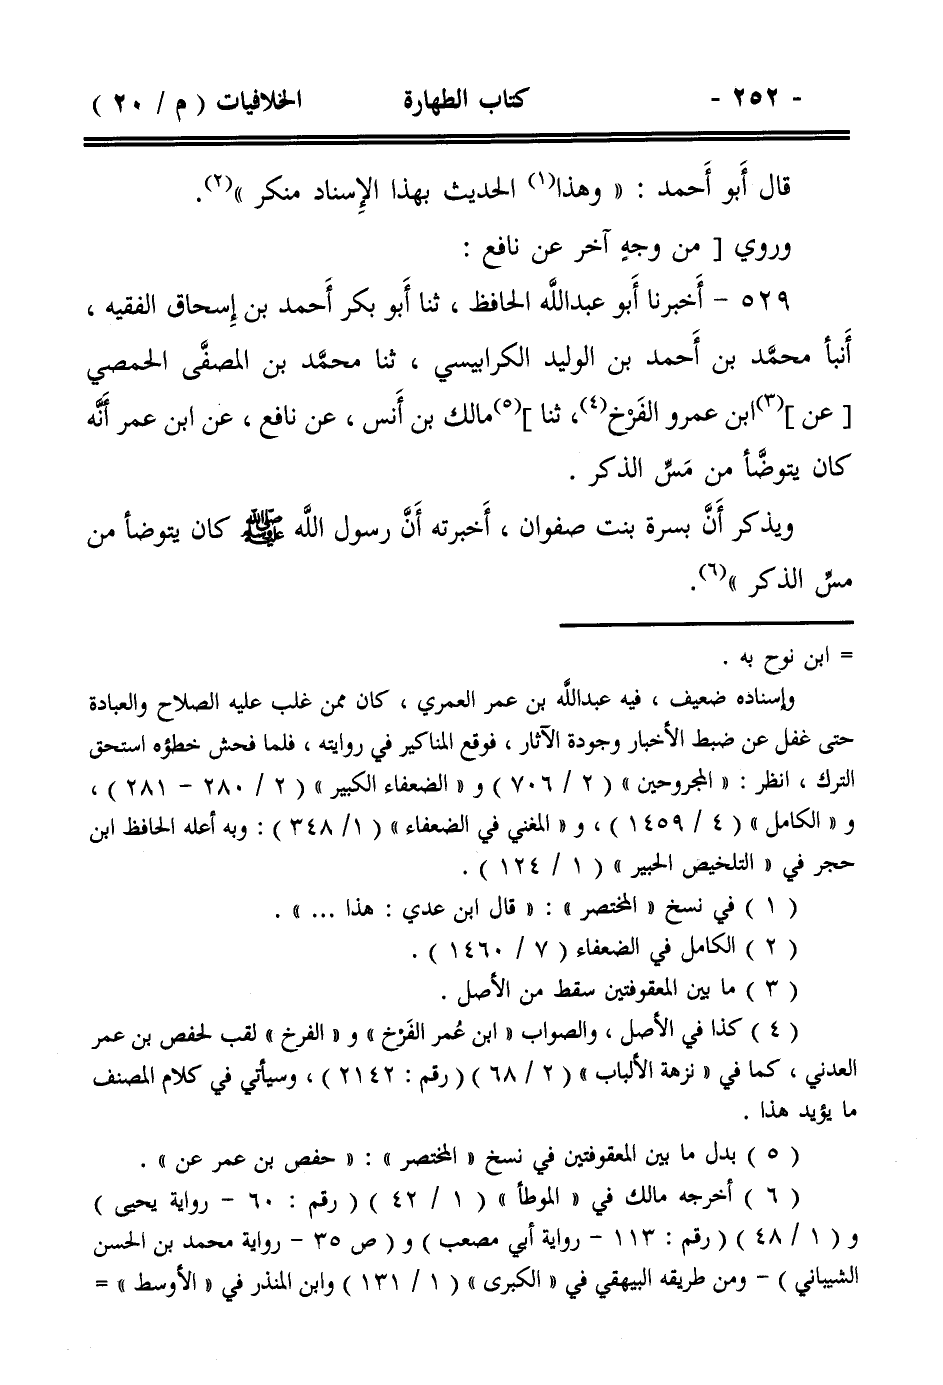 - ٢٥٢ - كتاب الطهارة الخلافيات ( م / ٢٠ )
قال أَبو أَحمد : « وهذا(١) الحديث بهذا الإِسناد منكر »(٢).
وروي [ من وجهٍ آخر عن نافع :
٥٢٩ - أَخبرنا أَبو عبدالله الحافظ ، ثنا أَبو بكر أَحمد بن إِسحاق الفقيه ،
أَنبأ محمَّد بن أَحمد بن الوليد الكرابيسي ، ثنا محمَّد بن المصفَّى الحمصي
[ عن ](٣)ابن عمرو الفَرْخ(٤)، ثنا ](٥)مالك بن أَنس ، عن نافع ، عن ابن عمر أَنَّه
كان يتوضَّأ من مَسِّ الذكر .
ويذكر أَنَّ بسرة بنت صفوان ، أَخبرته أَنَّ رسول اللَّه ﷺ كان يتوضأ من
مسِّ الذكر »(٦).
= ابن نوح به .
وإسناده ضعيف ، فيه عبداللَّه بن عمر العمري ، كان ممن غلب عليه الصلاح والعبادة
حتى غفل عن ضبط الأخبار وجودة الآثار ، فوقع المناكير في روايته ، فلما فحش خطؤه استحق
الترك ، انظر : « المجروحين » ( ٢ / ٧٠٦ ) و « الضعفاء الكبير » ( ٢ / ٢٨٠ - ٢٨١ ) ،
و « الكامل » ( ٤ / ١٤٥٩ ) ، و « المغني في الضعفاء » ( ١/ ٣٤٨ ) : وبه أعله الحافظ ابن
حجر في « التلخيص الحبير » ( ١ / ١٢٤ ) .
( ١ ) في نسخ « المختصر » : « قال ابن عدي : هذا ... » .
( ٢ ) الكامل في الضعفاء ( ٧ / ١٤٦٠ ) .
( ٣ ) ما بين المعقوفتين سقط من الأصل .
( ٤ ) كذا في الأصل ، والصواب « ابن عُمر الفَرْخ » و « الفرخ » لقب لحفص بن عمر
العدني ، كما في « نزهة الألباب » ( ٢ / ٦٨ ) ( رقم : ٢١٤٢ ) ، وسيأتي في كلام المصنف
ما يؤيد هذا .
( ٥ ) بدل ما بين المعقوفتين في نسخ « المختصر » : « حفص بن عمر عن » .
( ٦ ) أخرجه مالك في « الموطأ » ( ١ / ٤٢ ) ( رقم : ٦٠ - رواية يحيى )
و ( ١ / ٤٨ ) ( رقم : ١١٣ - رواية أبي مصعب ) و ( ص ٣٥ - رواية محمد بن الحسن
الشيباني ) - ومن طريقه البيهقي في « الكبرى » ( ١ / ١٣١ ) وابن المنذر في « الأوسط » =